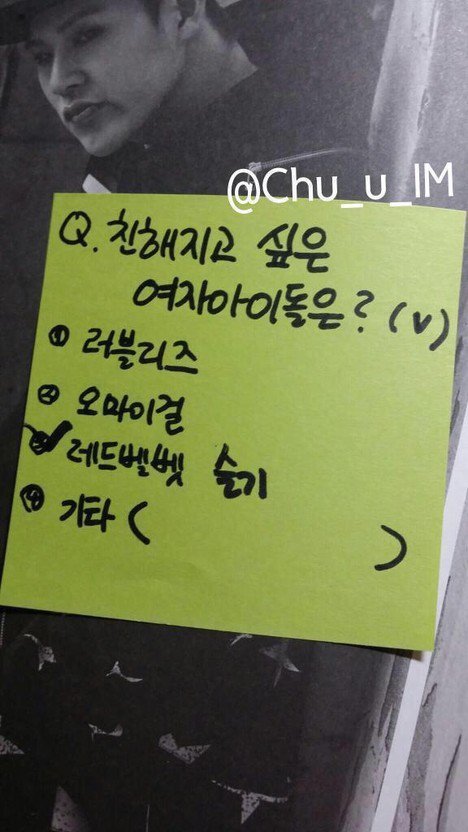 @Chu_u_IM
Q. 친해지고 싶은
여자아이돌은? (v)
① 러블리즈
② 오마이걸
③ 레드벨벳 슬기
④ 기타 ( )